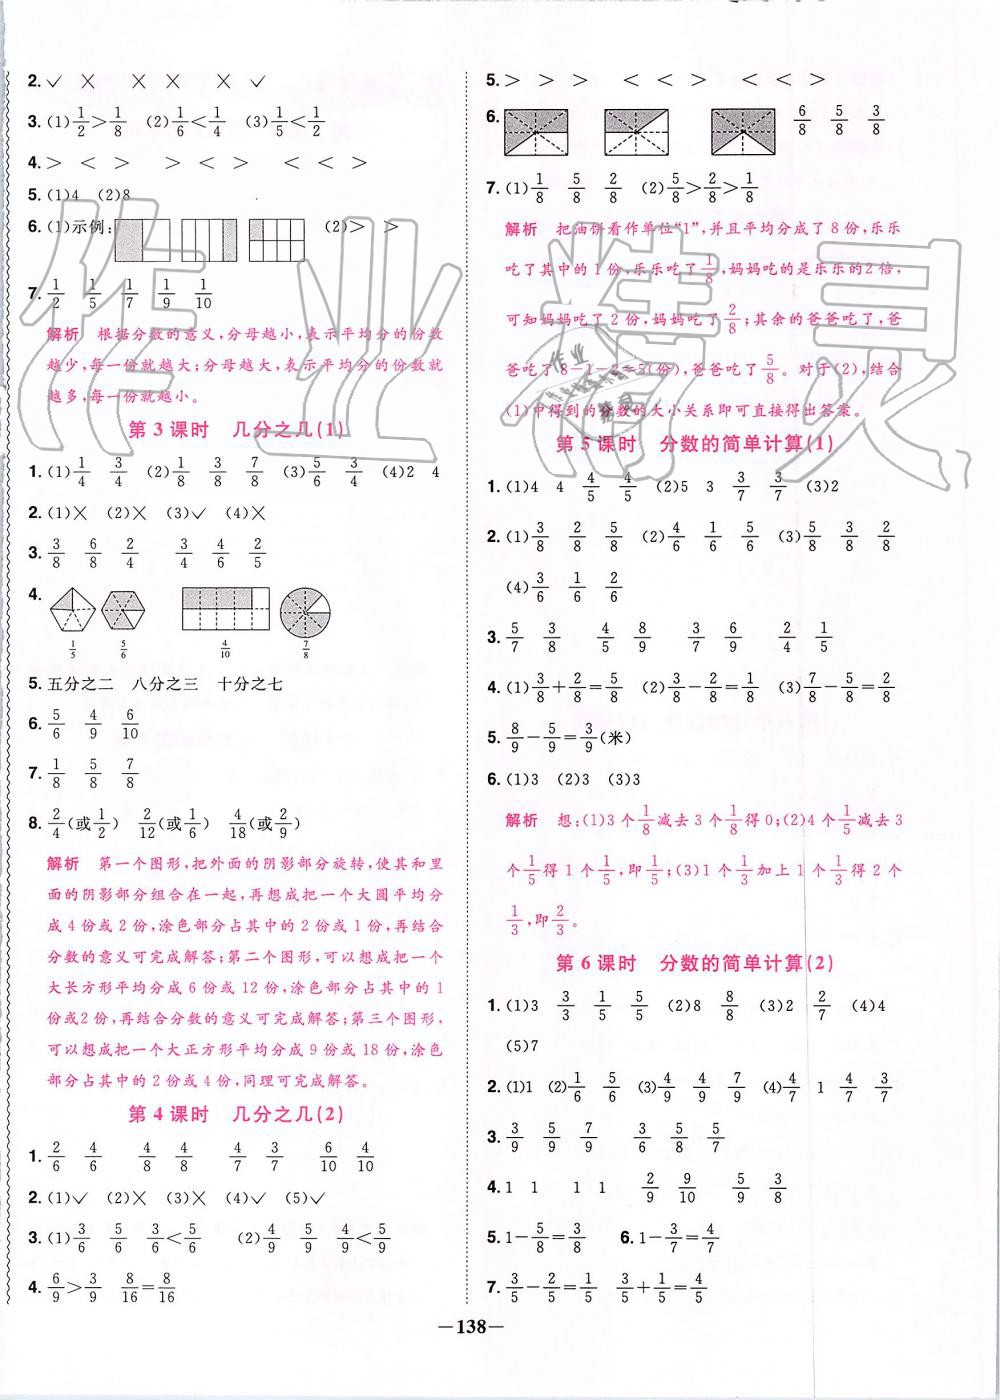 2. ✓ × × × × ✓
3. (1) 1/2 > 1/8 (2) 1/6 < 1/4 (3) 1/5 < 1/2
4. > < > > < > < < >
5. (1)4 (2)8
6. (1)示例: (2)> >
7. 1/2 1/5 1/7 1/9 1/10
解析 根据分数的意义,分母越小,表示平均分的份数
越少,每一份就越大;分母越大,表示平均分的份数就
越多,每一份就越小。
第 3 课时 几分之几(1)
1. (1) 1/4 3/4 (2) 1/8 3/8 7/8 (3) 5/6 3/4 (4)2 4
2. (1)× (2)× (3)✓ (4)×
3. 3/8 6/8 2/4 3/4 4/6 2/5
4.
1/5 5/6 4/10 7/8
5. 五分之二 八分之三 十分之七
6. 5/6 4/9 6/10
7. 1/8 5/8 7/8
8. 2/4(或1/2) 2/12(或1/6) 4/18(或2/9)
解析 第一个图形,把外面的阴影部分旋转,使其和里
面的阴影部分组合在一起,再想成把一个大圆平均分
成 4 份或 2 份,涂色部分占其中的 2 份或 1 份,再结合
分数的意义可完成解答;第二个图形,可以想成把一个
大长方形平均分成 6 份或 12 份,涂色部分占其中的 1
份或2份,再结合分数的意义可完成解答;第三个图形,
可以想成把一个大正方形平均分成 9 份或 18 份,涂色
部分占其中的 2 份或 4 份,同理可完成解答。
第 4 课时 几分之几(2)
1. 2/6 4/6 4/8 4/8 4/7 3/7 6/10 4/10
2. (1)✓ (2)× (3)× (4)✓ (5)✓
3. (1) 3/6 5/6 3/6 < 5/6 (2) 4/9 5/9 4/9 < 5/9
4. 6/9 > 3/9 8/16 = 8/16
5. > > > < < > < < >
6. 6/8 5/8 3/8
7. (1) 1/8 5/8 2/8 (2) 5/8 > 2/8 > 1/8
解析 把油饼看作单位“1”,并且平均分成了 8 份,乐乐
吃了其中的 1 份,乐乐吃了1/8,妈妈吃的是乐乐的2倍,
可知妈妈吃了 2 份,妈妈吃了2/8;其余的爸爸吃了,爸
爸吃了8-1-2=5(份),爸爸吃了5/8。对于(2),结合
(1)中得到的分数的大小关系即可直接得出答案。
第 5 课时 分数的简单计算(1)
1. (1)4 4 4/5 4/5 (2)5 3 3/7 3/7 (3)2
2. (1) 3/8 2/8 5/8 (2) 4/6 1/6 5/6 (3) 5/8 3/8 2/8
(4) 3/6 1/6 2/6
3. 5/7 3/8 4/5 8/9 3/7 6/9 2/4 1/5
4. (1) 3/8 + 2/8 = 5/8 (2) 3/8 - 2/8 = 1/8 (3) 7/8 - 5/8 = 2/8
5. 8/9 - 5/9 = 3/9(米)
6. (1)3 (2)3 (3)3
解析 想:(1)3 个1/8减去 3 个1/8得 0;(2)4 个1/5减去 3
个1/5得 1 个1/5,即1/5;(3)1 个1/3加上 1 个1/3得 2 个
1/3,即2/3。
第 6 课时 分数的简单计算(2)
1. (1)3 3/3 1/5 5/5 (2)8 8/8 (3)2 2/7 (4)4
(5)7
2. (1)1 (2) 1/6 5/6 (3) 4/9 4/9 7/9 (4) 4/7 1 4/7 3/7
3. 3/9 5/9 7/9 3/6 5/8 5/7
4. 1 1 1 1 2/9 9/10 5/9 3/8
5. 1 - 5/8 = 3/8 6. 1 - 3/7 = 4/7
7. 3/5 - 2/5 = 1/5 3/5 + 1/5 = 4/5
—138—
作业精灵